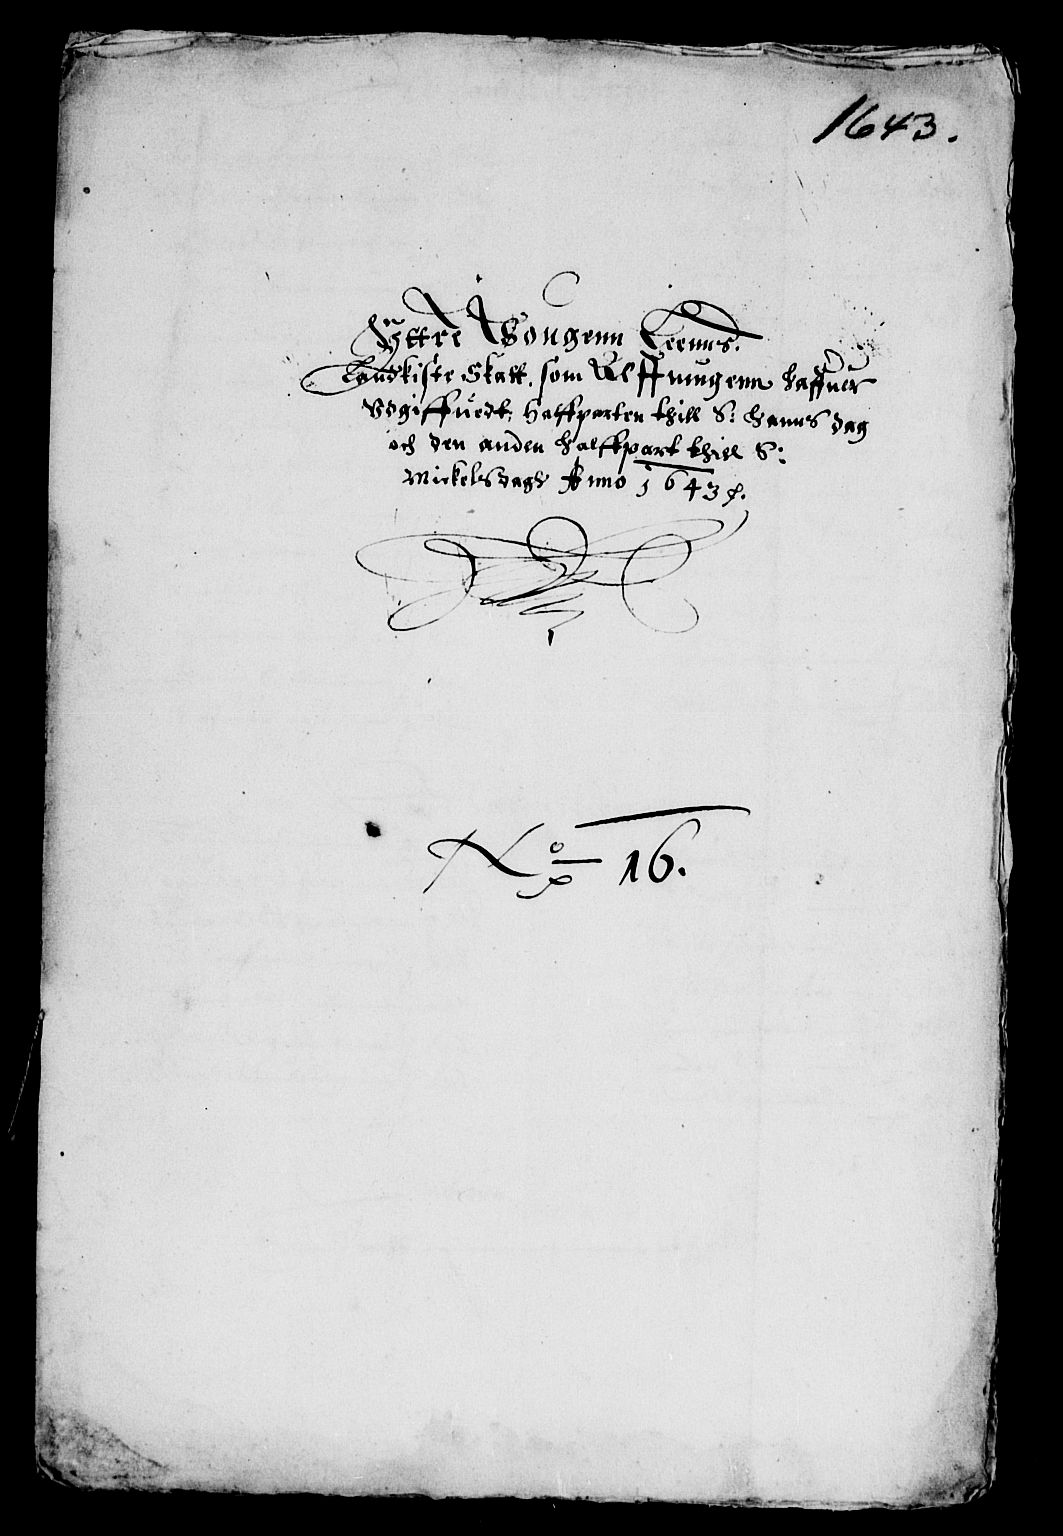 1643.
Yttre Wougenn Leenns.
Landkiste Skatt, som Allffmuugenn haffuer
Vdgiffuedt, Halffparten thill S: Hanns dag
och den anden halffpart thill S:
Mickels dagh Anno 1643 p.
No 16.